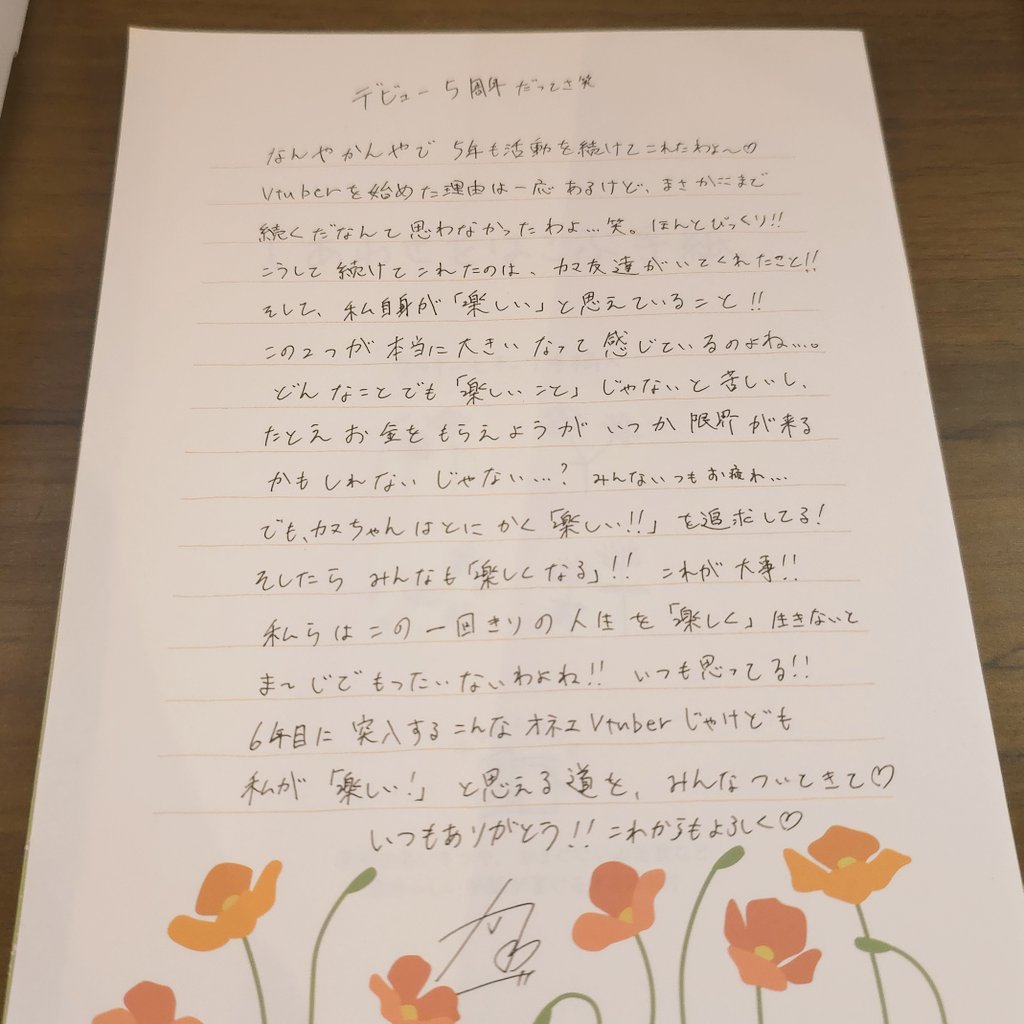 デビュー5周年だってさ笑
なんやかんやで 5年も活動を続けてこれたわよ〜♡
Vtuberを始めた理由は一応あるけど、まさかここまで
続くだなんて思わなかったわよ…笑。ほんとびっくり!!
こうして続けてこれたのは、カマ友達がいてくれたこと!!
そして、私自身が「楽しい」と思えていること!!
この2つが本当に大きいなって感じているのよね…。
どんなことでも「楽しいこと」じゃないと苦しいし、
たとえお金をもらえようがいつか限界が来る
かもしれないじゃない…? みんないつもお疲れ…
でも、カヌちゃんはとにかく「楽しい!!」を追求してる!
そしたらみんなも「楽しくなる」!! これが大事!!
私らはこの一回きりの人生を「楽しく」生きないと
ま〜じでもったいないわよね!! いつも思ってる!!
6年目に突入するこんなオネエVtuberじゃけども
私が「楽しい!」と思える道を、みんなついてきて♡
いつもありがとう!! これからもよろしく♡